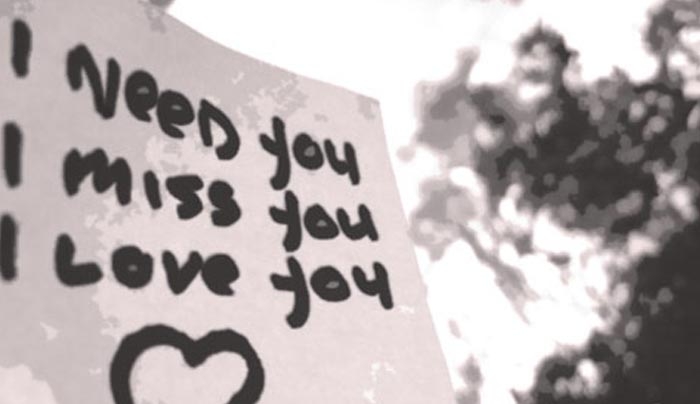 I Need you
I miss you
I Love you